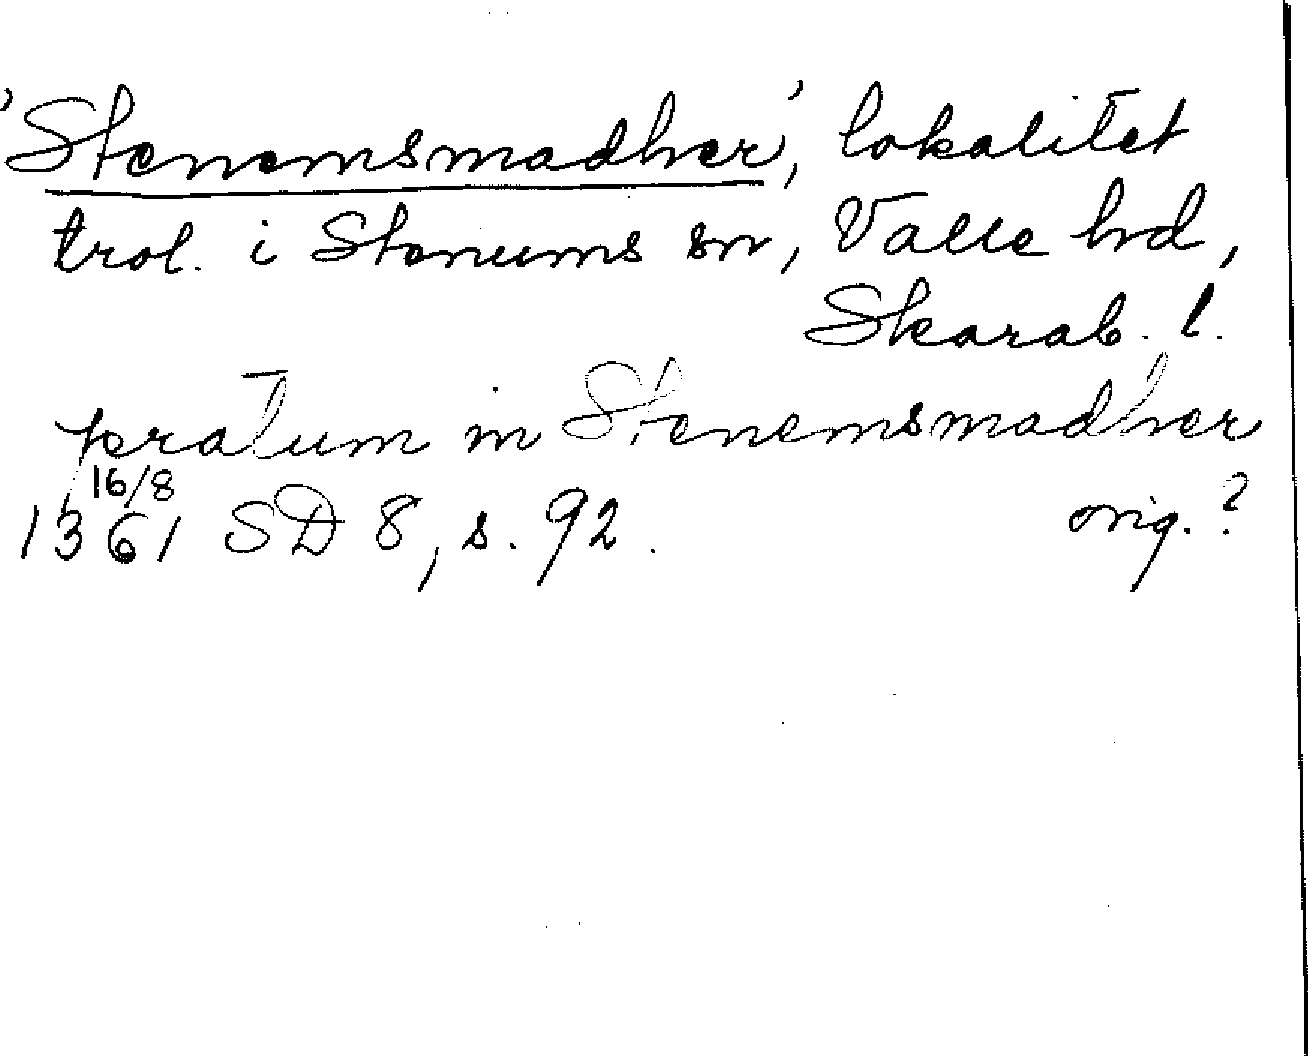 'Stenemsmadher', lokalitet
trol. i Stenums sn, Valle hd,
Skarab. l.
pratum in Stenemsmadher
16/8
1361 SD 8, s. 92. orig. ?